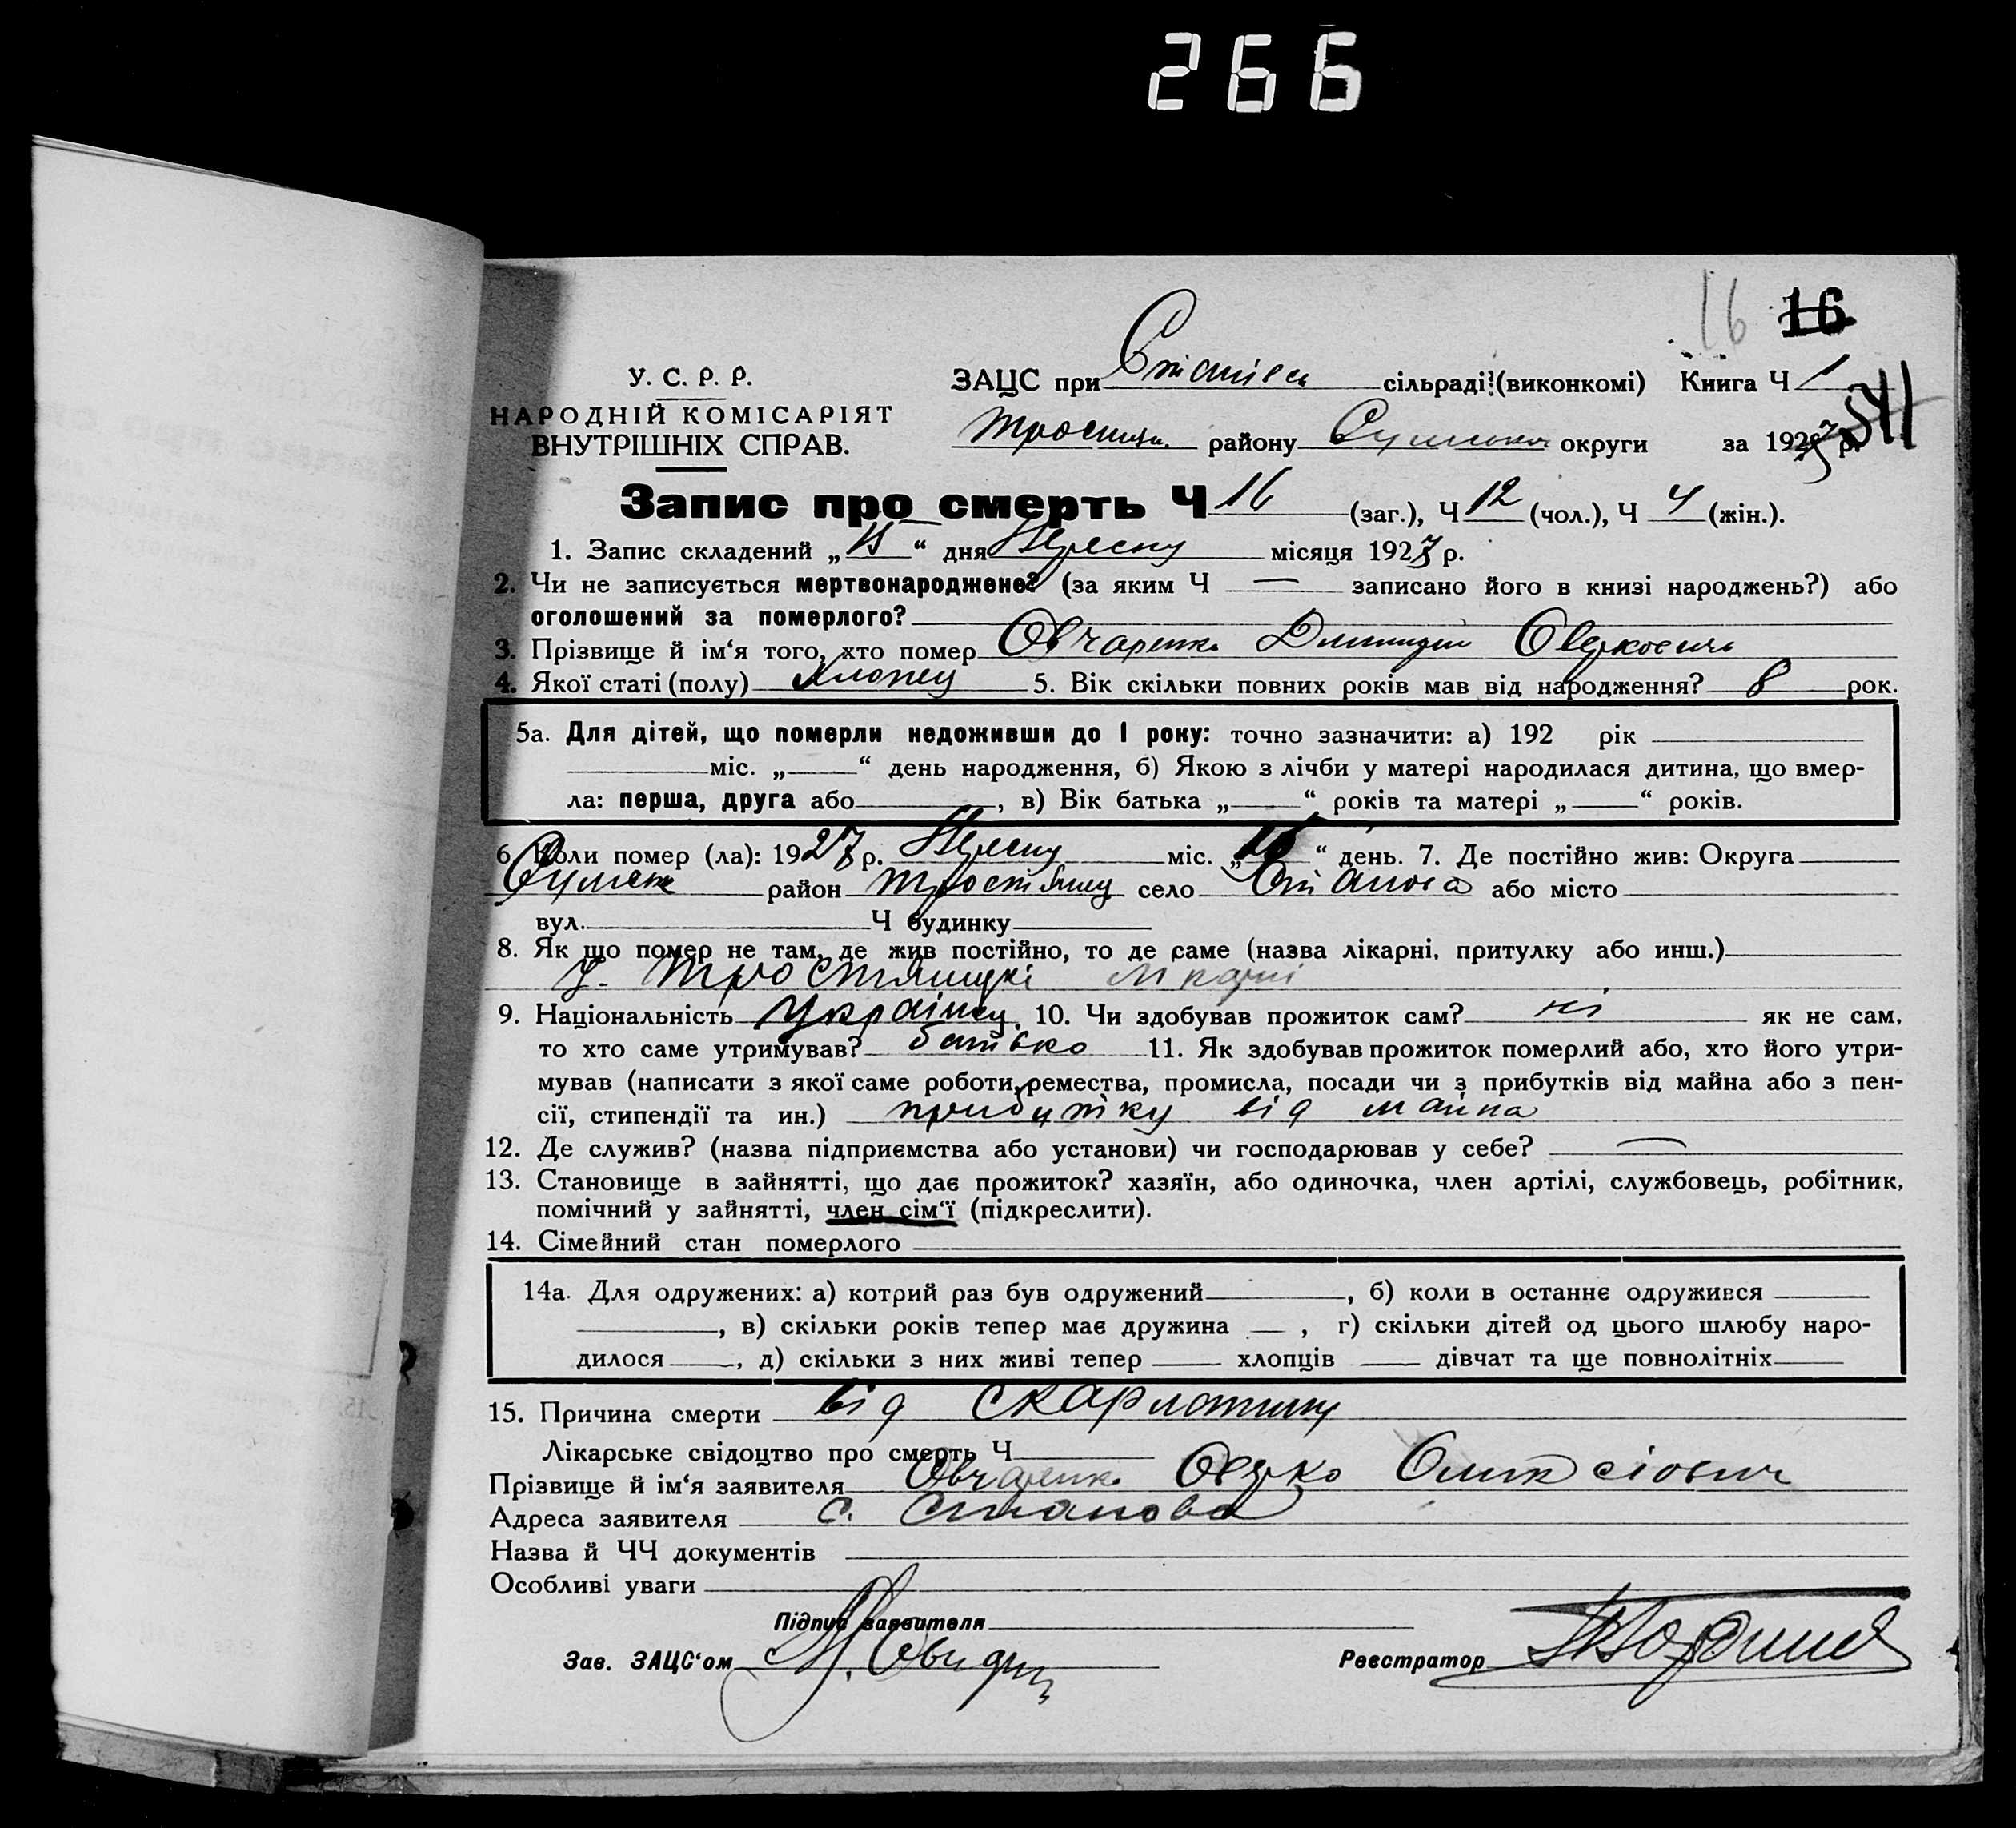 266
16 16
У. С. Р. Р.
НАРОДНІЙ КОМІСАРІЯТ
ВНУТРІШНІХ СПРАВ.
ЗАЦС при сільраді (виконкомі) Книга Ч 1
району округи за 192 р.
Запис про смерть Ч 16 (заг.), Ч 12 (чол.), Ч 4 (жін.).
1. Запис складений „ “ дня Вересня місяця 192 р.
2. Чи не записується мертвонароджене? (за яким Ч — записано його в книзі народжень?) або
оголошений за померлого?
3. Прізвище й ім‘я того, хто помер Овчаренко Дмитрий Оверкоевич
4. Якої статі (полу) Хлопец 5. Вік скільки повних років мав від народження? 8 рок.
5а. Для дітей, що померли недоживши до 1 року: точно зазначити: а) 192 рік
міс. „ “ день народження, б) Якою з лічби у матері народилася дитина, що вмер-
ла: перша, друга або , в) Вік батька „ “ років та матері „ “ років.
6. Коли помер (ла): 192 р. Вересня міс. „ “ день. 7. Де постійно жив: Округа
район Тростянец село або місто
вул. Ч будинку
8. Як що помер не там, де жив постійно, то де саме (назва лікарні, притулку або инш.)
У Тростянецкі лікарні
9. Національність Українец 10. Чи здобував прожиток сам? ні як не сам,
то хто саме утримував? батько 11. Як здобував прожиток померлий або, хто його утри-
мував (написати з якої саме роботи, ремества, промисла, посади чи з прибутків від майна або з пен-
сії, стипендії та ин.) прибутку від майна
12. Де служив? (назва підприємства або установи) чи господарював у себе? —
13. Становище в зайнятті, що дає прожиток? хазяїн, або одиночка, член артілі, службовець, робітник,
помічний у зайнятті, член сім‘ї (підкреслити).
14. Сімейний стан померлого
14а. Для одружених: а) котрий раз був одружений , б) коли в останнє одружився
, в) скільки років тепер має дружина , г) скільки дітей од цього шлюбу наро-
дилося , д) скільки з них живі тепер хлопців дівчат та ще повнолітніх
15. Причина смерти від скарлатини
Лікарське свідоцтво про смерть Ч
Прізвище й ім‘я заявителя Овчаренко Оверко
Адреса заявителя с. Станова
Назва й ЧЧ документів
Особливі уваги
Підпис заявителя
Зав. ЗАЦС‘ом
Реєстратор